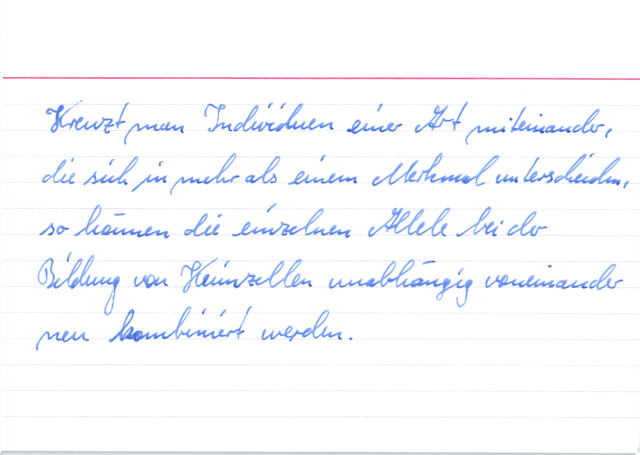 Kreuzt man Individuen einer Art miteinander,
die sich in mehr als einem Merkmal unterscheiden,
so können die einzelnen Allele bei der
Bildung von Keimzellen unabhängig voneinander
neu kombiniert werden.